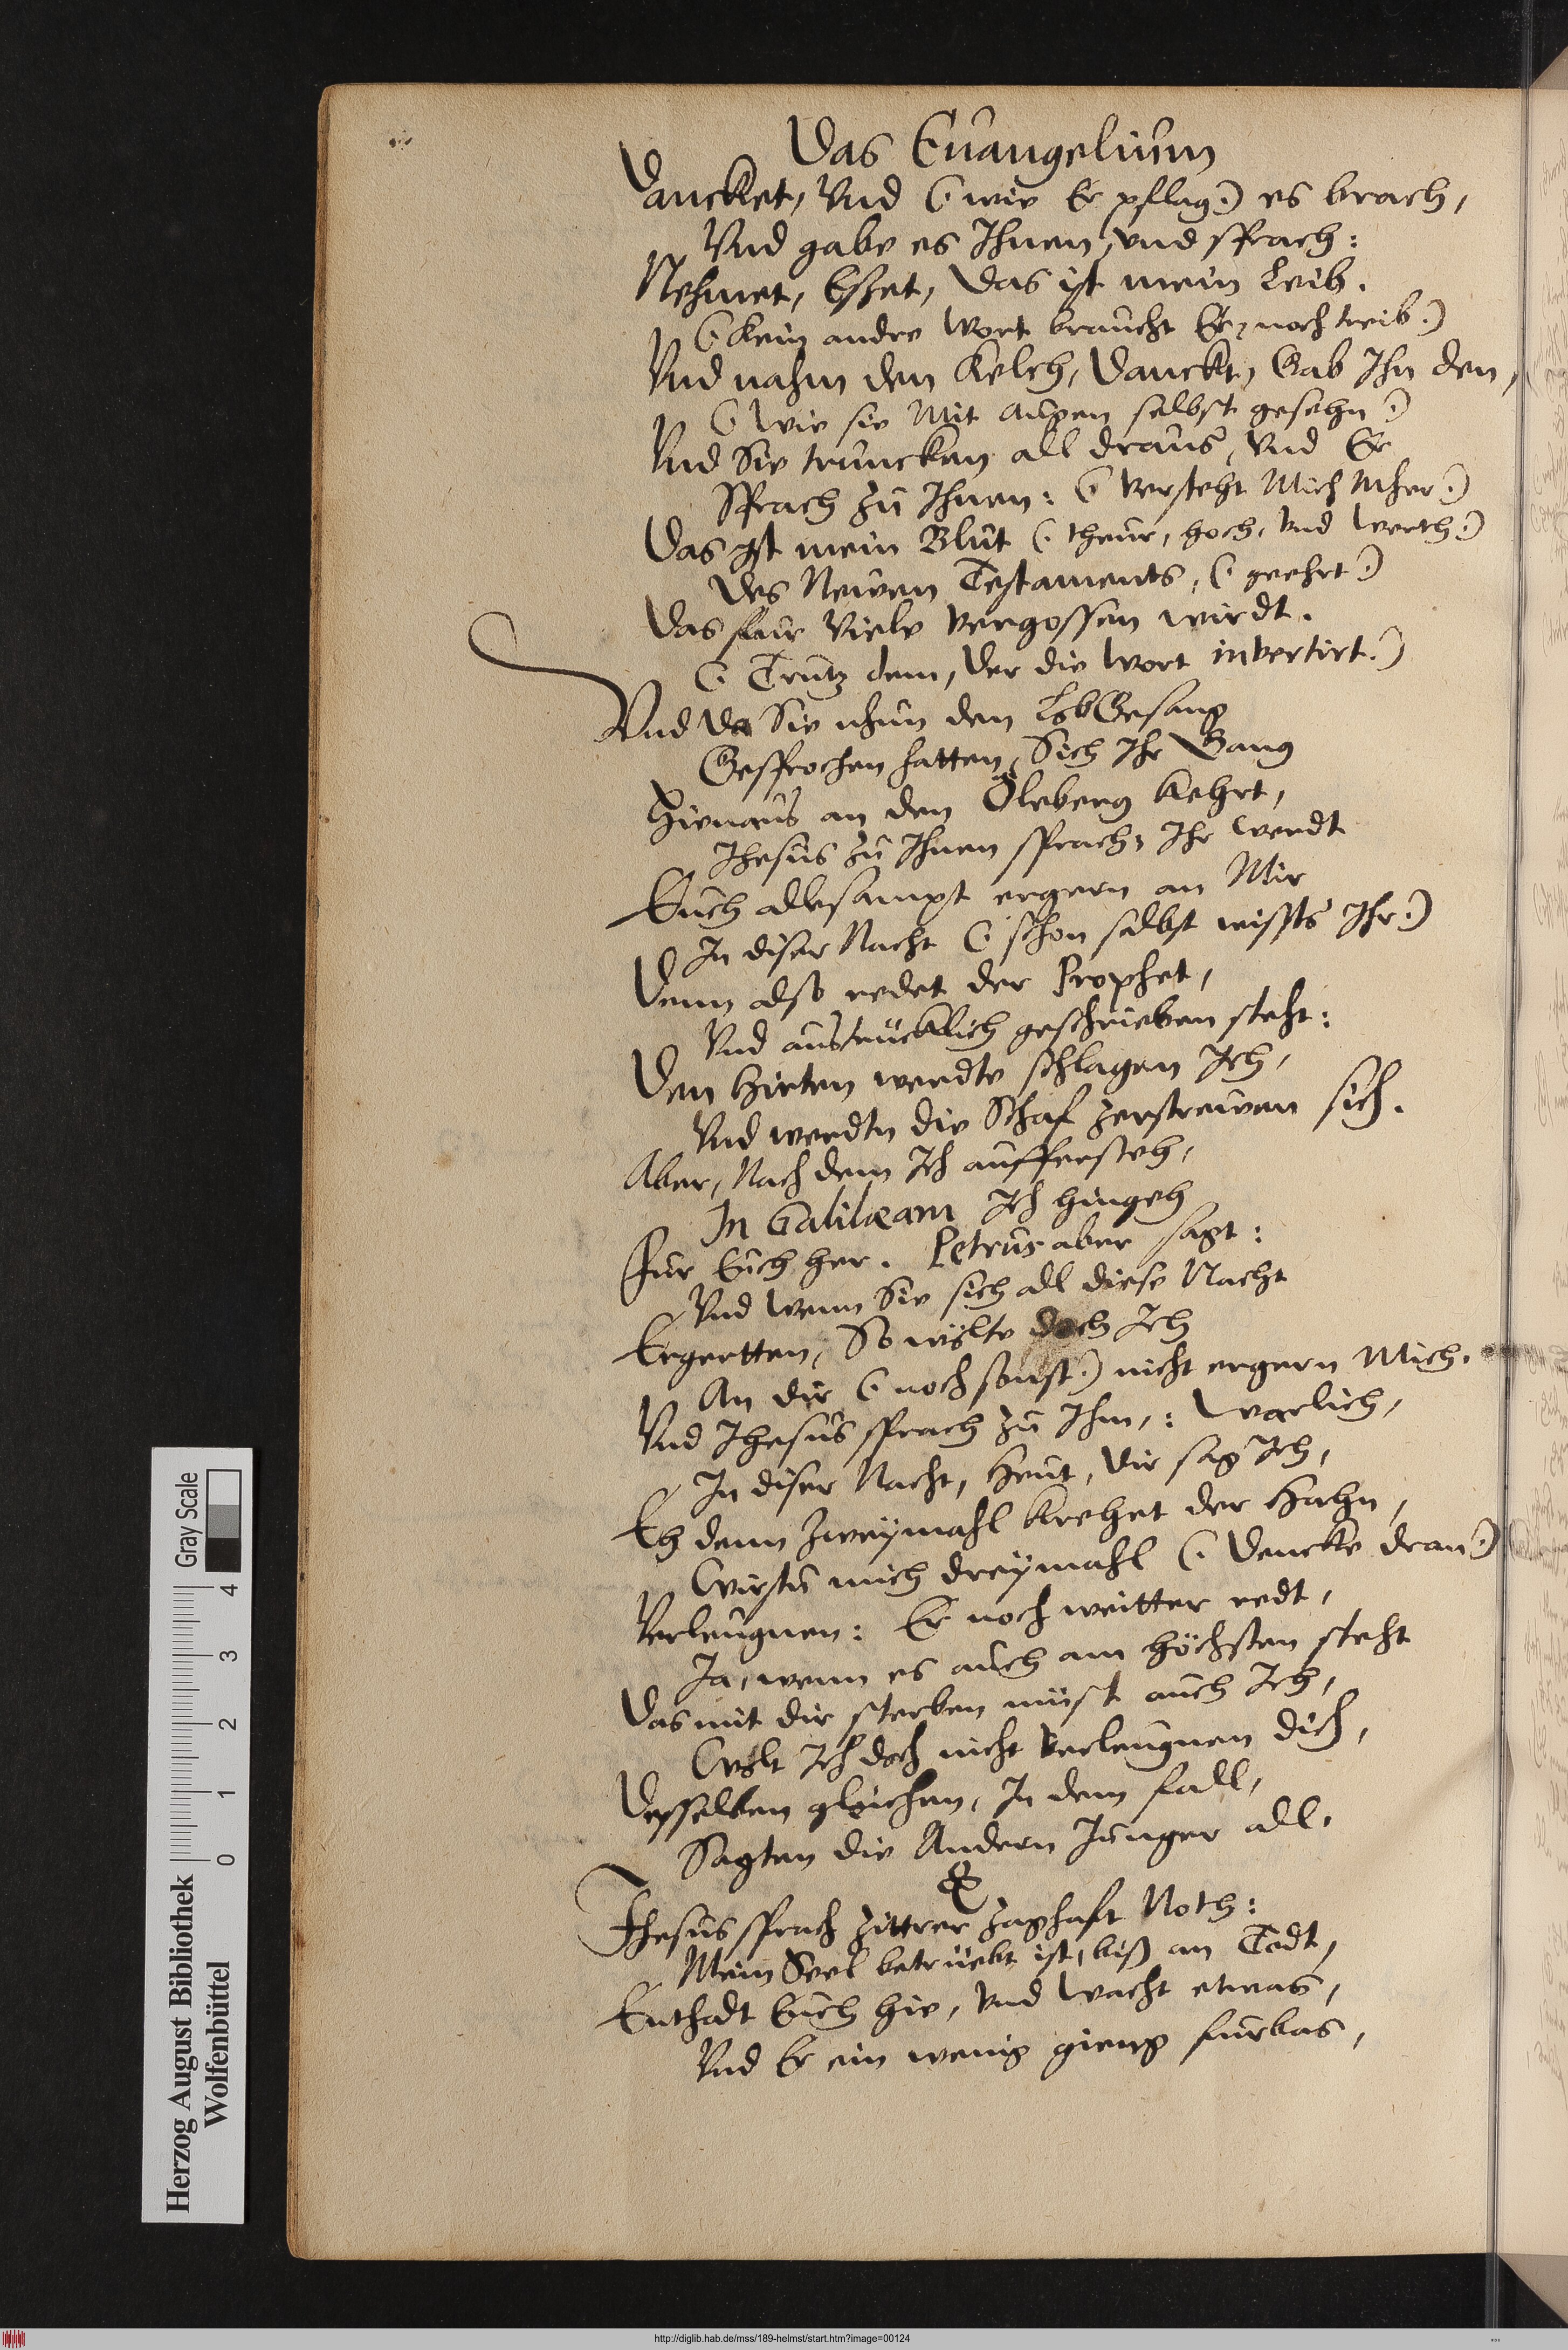 Das Euangelium
Dancket, Vnd (: wie Er pflag :) es brach,
Vnd gabe es Ihnen, vnd sprach:
Nehmet, Eßet, Das ist mein Leib.
(: Kein andre Wort braucht Er, noch treib :)
Vnd nahm den Kelch, Danckt, Gab Ihn den,
(: Wie sie Mit augen selbst gesehn :)
Vnd Sie truncken all draus, Vnd Er
Sprach zu Ihnen: (: Versteht Mich Mher :)
Das ist mein Blut (: theur, hoch, vnd werth :)
Des Newen Testaments, (: geehrt :)
Das fur Viele vergossen wirdt.
(: Trutz dem, Der die Wort invertirt :)
Vnd Da Sie nhun den LobGesang
Gesprochen hatten, Sich Ihr Gang
Hienaus an den Öleberg Kehrt,
Jhesus zu Ihnen sprach, Ihr werdt
Euch allesampt ergern an Mir
In diser Nacht (: schon selbst wissts Ihr :)
Denn also redet der Prophet,
Vnd austrücklich geschrieben steht:
Den Hirten werdte schlagen Ich,
Vnd werdtn die Schaf zerstrewen sich.
Aber, Nach dem Ich auffersteh,
In Galilæam Ich hingeh
Fur Euch her. Petrus aber sagt:
Vnd Wenn Sie sich all diese Nacht
Ergertten, So wolte doch Ich
An dir (: noch sonst :) nicht ergern Mich.
Vnd Jhesus sprach zu Ihm,: Warlich,
In diser Nacht, Heut, Dir sag Ich,
Eh denn zweymahl Krehet der Hahn,
Wirstu mich dreymahl (: Dencke dran :)
Verleugnen: Er noch weitter redt,
Ja, wenn es auch am höchsten steht
Das mit dir sterben müst auch Ich,
Wolt Ich doch nicht Verleugnen dich,
Desselben gleichen, In dem fall,
Sagten die Andern Junger all.
Jhesus sprach zittrer zaghaft Noth:
Mein Seel betrüebt ist, biß an Todt,
Enthalt Euch hie, Vnd Wacht etwas,
Vnd Er ein wenig gieng furbas,
Herzog August Bibliothek
Wolfenbüttel
0 1 2 3 4
Gray Scale
http://diglib.hab.de/mss/189-helmst/start.htm?image=00124